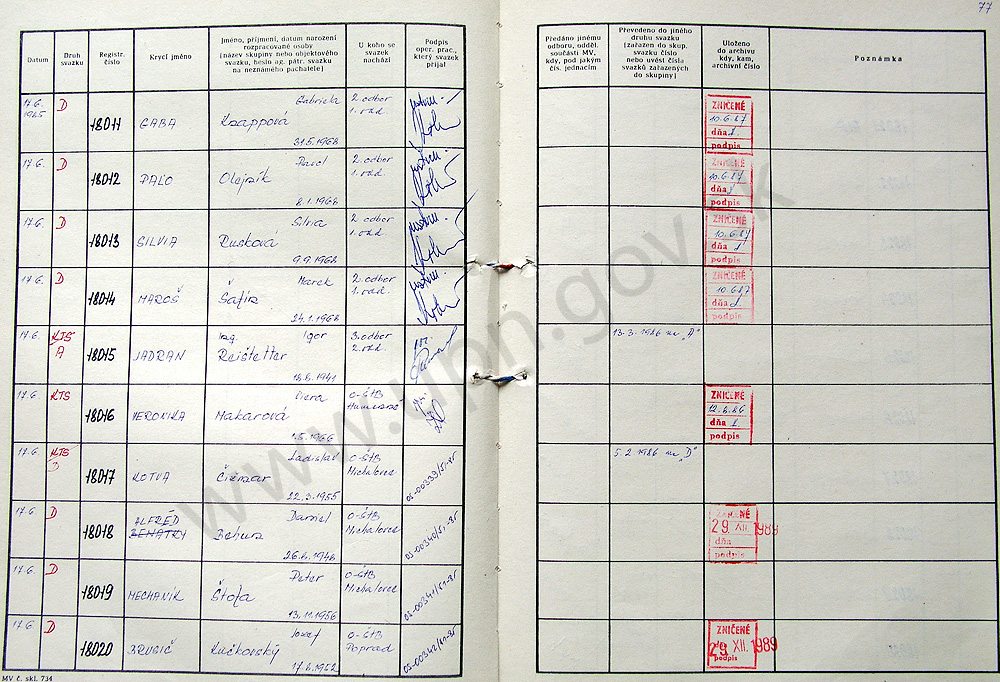 77
Datum
Druh svazku
Registr. číslo
Krycí jméno
Jméno, příjmení, datum narození rozpracované osoby [název skupiny nebo objektového svazku, heslo ag. pátr. svazku na neznámého pachatele]
U koho se svazek nachází
Podpis oper. prac., který svazek přijal
Předáno jinému odboru, odděl. součásti MV, kdy, pod jakým čís. jednacím
Převedeno do jiného druhu svazku [zařazen do skup. svazku číslo nebo uvést čísla svazků zařazených do skupiny]
Uloženo do archivu kdy, kam, archivní číslo
Poznámka
17.6. 1985 D 18011 GABA Gabriela Knappová 31.5.1968 2. odbor 1. odd. ZNIČENÉ 10.6.87 dňa podpis
17.6. D 18012 PAĽO Pavol Olejník 2.1.1968 2. odbor 1. odd. ZNIČENÉ 10.6.87 dňa podpis
17.6. D 18013 SILVIA Silvia Rusková 9.9.1968 2. odbor 1. odd. ZNIČENÉ 10.6.87 dňa podpis
17.6. D 18014 MAROŠ Marek 24.1.1968 2. odbor 1. odd. ZNIČENÉ 10.6.87 dňa podpis
17.6. KTS A 18015 JADRAN Ing. Igor Reištetter 1941 3. odbor 2. odd. 13.3.1986 na "A"
17.6. KTS 18016 VERONIKA Viera Makarová 1.5.1966 O-ŠTB Humenné ZNIČENÉ 86 dňa podpis
17.6. KTS D 18017 KOTVA Ladislav Čižmar 22.3.1955 O-ŠTB Michalovce 05-00339/51-85 5.2.1986 na "D"
17.6. D 18018 ALFRÉD BENÁTKY Daniel 26.6.1946 O-ŠTB Michalovce 05-00340/51-85 ZNIČENÉ 29. XII. 1989 dňa podpis
17.6. D 18019 MECHANIK Peter Štofa 13.11.1956 O-ŠTB Michalovce 05-00341/51-85
17.6. D 18020 Jozef Kučkovský 17.6.1952 O-ŠTB Poprad 05-00342/51-85 ZNIČENÉ 29. XII. 1989 podpis
MV č. skl. 734
www.upn.gov.sk